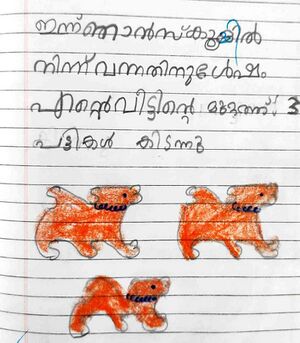 ഇന്ന് ഞാൻ സ്കൂളിൽ
നിന്ന് വന്നതിനുശേഷം
എന്റെ വീട്ടിന്റെ മുറ്റത്ത് 3
പട്ടികൾ കിടന്നു